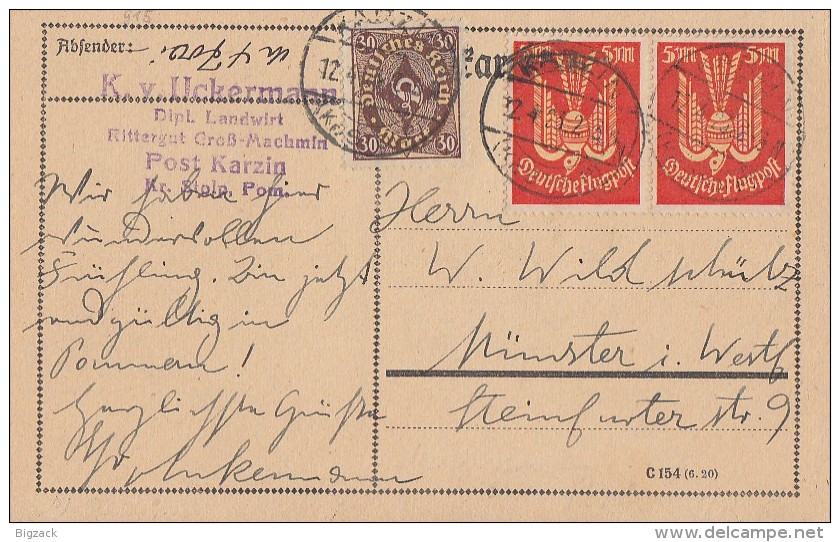 Absender:
K. v. Uckermann
Dipl. Landwirt
Rittergut Groß-Machmin
Post Karzin
Kr. Stolp, Pom.
Wir haben hier
wundervollen
Frühling. Bin jetzt
endgültig in
Pommern!
Herzlichste Grüße
30 30
Deutsches Reich
Mark
30 30
5 M 5 M
Deutsche Flugpost
5 M 5 M
Deutsche Flugpost
Herrn
W. Wildschütz
Münster i. Westf
Steinfurter str. 9
C 154 (6. 20)
Bigzack
delcampe.net